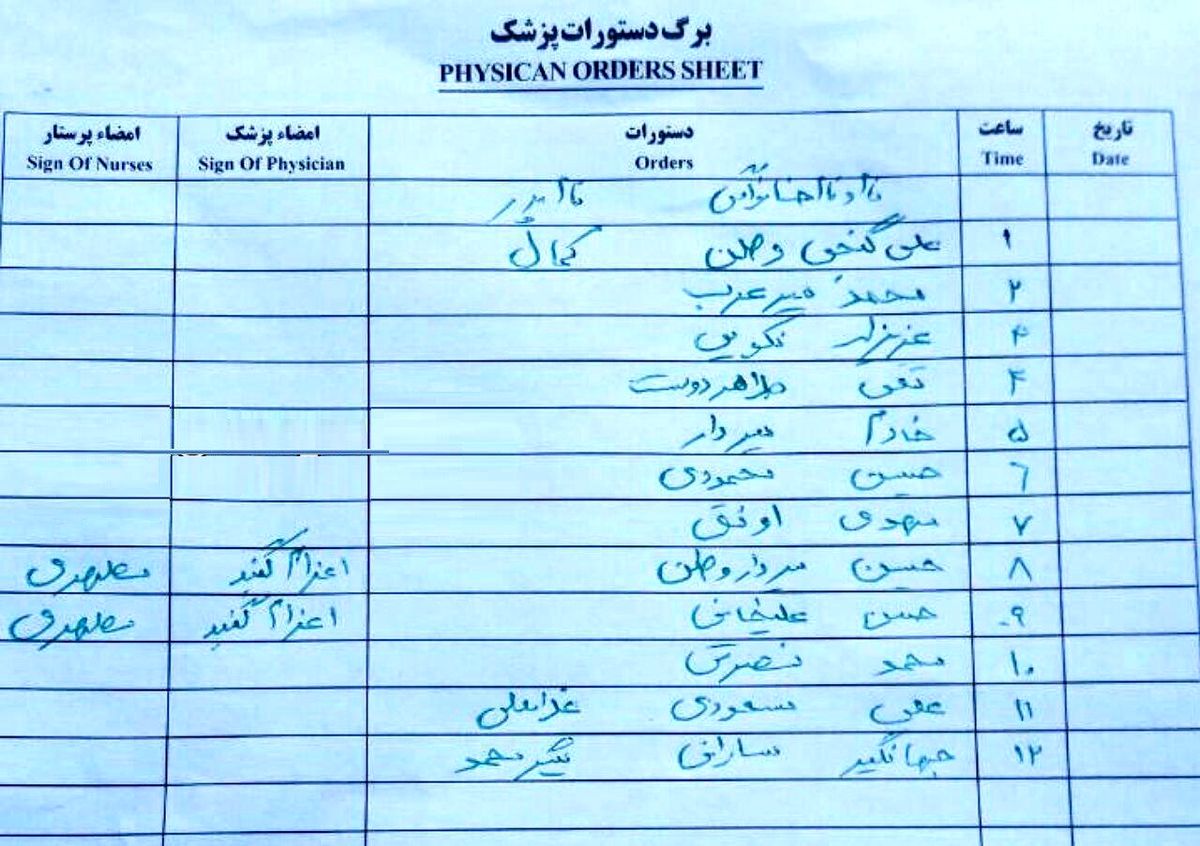 برگ دستورات پزشک
PHYSICAN ORDERS SHEET
تاریخ ساعت دستورات امضاء پزشک امضاء پرستار
Date Time Orders Sign Of Physician Sign Of Nurses
نام و نام خانوادگی نام پدر
۱ علی گنجی وطن کمال
۲ محمد میرعرب
۳ نکویی
۴ تقی طاهردوست
۵ خادم سردار
۶ حسین محمودی
۷ مهدی اوفق
۸ حسین سردار وطن اعزام گنبد
۹ حسن علیخانی اعزام گنبد
۱۰ محمد نصرتی
۱۱ مسعودی غلامعلی
۱۲ جهانگیر سارانی